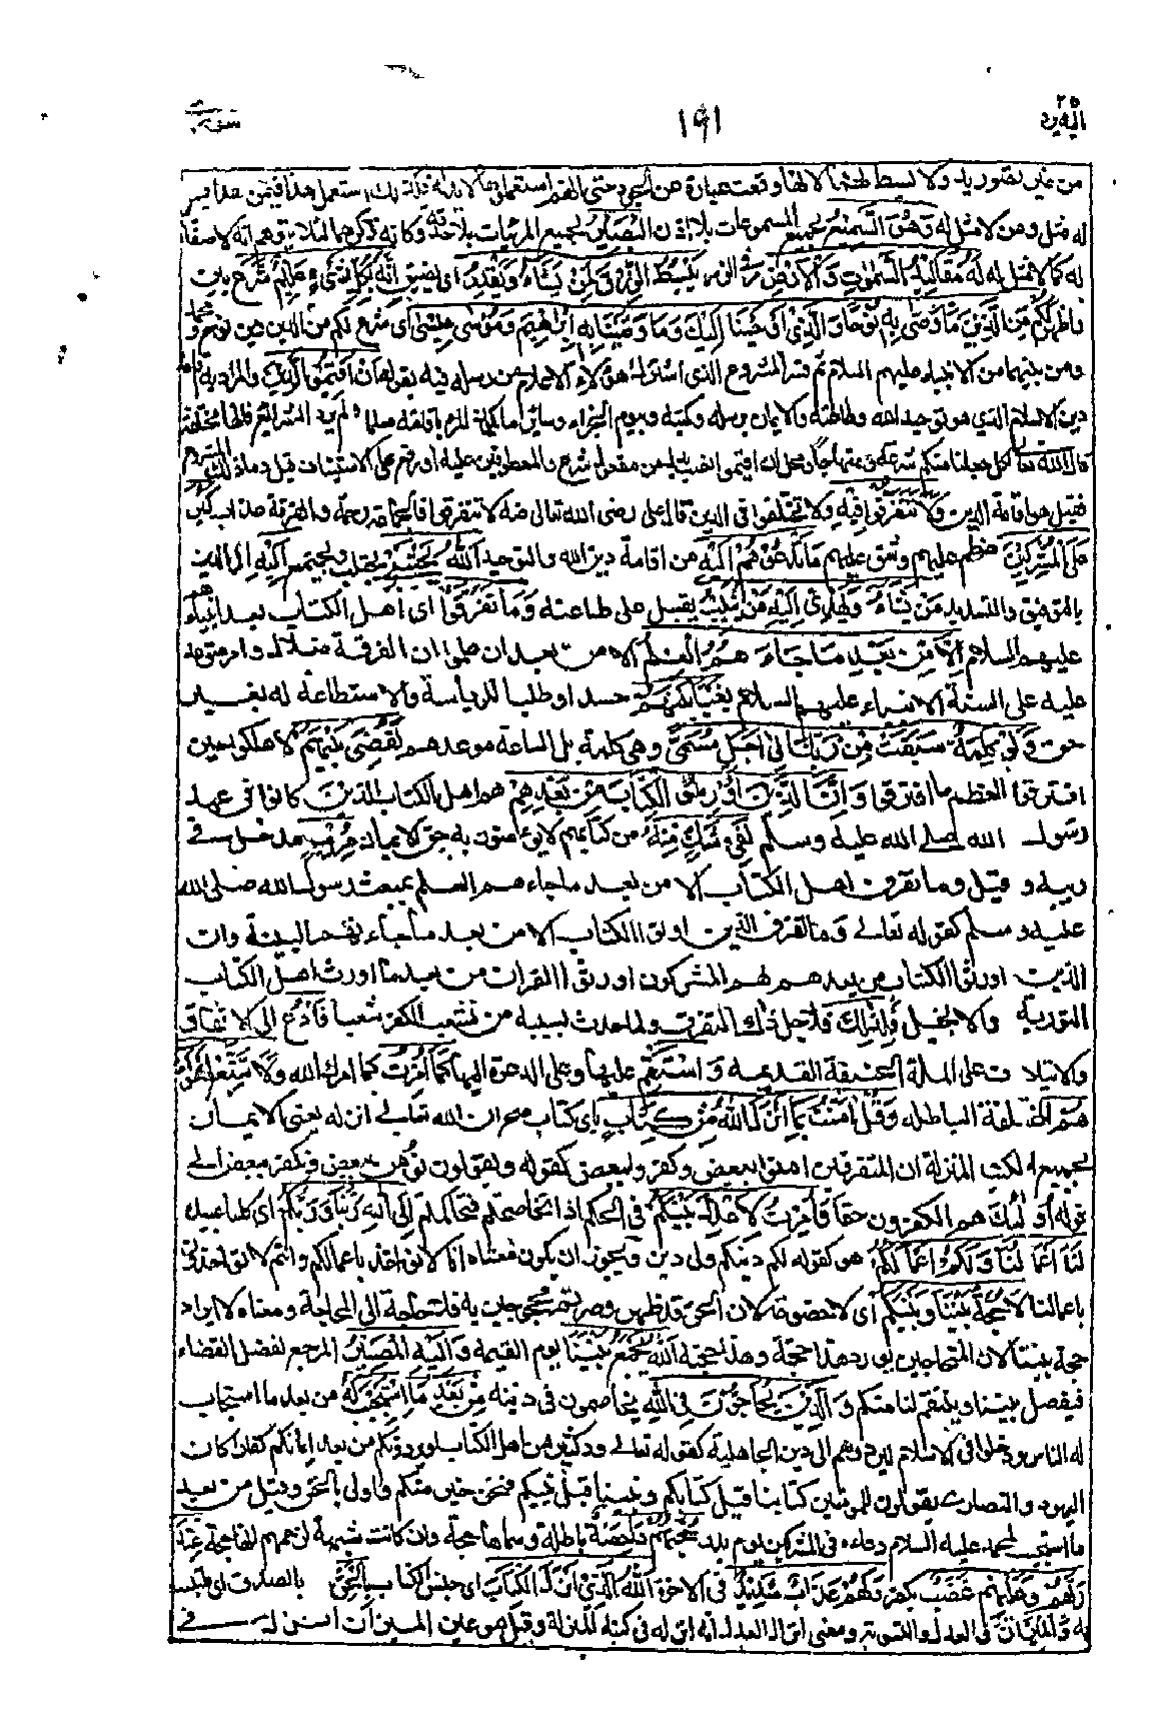 اليه يرد ٢٥
١٩١
من غير تصور يد ولا بسط لها لانها وقعت عبارة عن الجود حتى انهم استعملوها فيمن لا يد له فكذلك استعمل هذا فيمن له
مثل ومن لا مثل له وَهُوَ السَّمِيْعُ لجميع المسموعات بلا اذن الْبَصِيْرُ لجميع المرئيات بلا حدقة وكانه ذكرهما لئلا يتوهم انه لا صفة
له كما لا مثل له لَهُ مَقَالِيْدُ السَّمٰوٰتِ وَالْاَرْضِ يَبْسُطُ الرِّزْقَ لِمَنْ يَّشَآءُ وَيَقْدِرُ اى يضيق اِنَّهٗ بِكُلِّ شَىْءٍ عَلِيْمٌ شَرَعَ بين
واظهر لَكُمْ مِّنَ الدِّيْنِ مَا وَصّٰى بِهٖ نُوْحًا وَّالَّذِىْ اَوْحَيْنَا اِلَيْكَ وَمَا وَصَّيْنَا بِهٖ اِبْرَاهِيْمَ وَمُوْسٰى وَعِيْسٰى اى شرع لكم من الدين دين نوح و محمد
ومن بينهما من الانبياء عليهم السلام ثم فسر المشروع الذى اشترك هؤلاء الاعلام من رسله فيه بقوله اَنْ اَقِيْمُوا الدِّيْنَ والمراد به اقامة
دين الاسلام الذى هو توحيد الله وطاعته والايمان برسله وكتبه وبيوم الجزاء وسائر ما يكون المرء باقامته مسلما ولم يرد الشرائع فانها مختلفة
قال الله تعالى لكل جعلنا منكم شرعة ومنهاجا ومحل ان اقيموا نصب بدل من مفعول شرع والمعطوفين عليه او رفع على الاستيناف كانه قيل وما ذلك المشروع
فقيل هو اقامة الدين وَلَا تَتَفَرَّقُوْا فِيْهِ ولا تختلفوا فى الدين قال على رضى الله تعالى عنه لا تتفرقوا فالجماعة رحمة والفرقة عذاب كَبُرَ
عَلَى الْمُشْرِكِيْنَ عظم عليهم وشق عليهم مَا تَدْعُوْهُمْ اِلَيْهِ من اقامة دين الله والتوحيد اَللهُ يَجْتَبِىْ يجتلب ويجتمع اِلَيْهِ الى الدين
بالتوفيق والتسديد مَنْ يَّشَآءُ وَيَهْدِىْ اِلَيْهِ مَنْ يُّنِيْبُ يقبل على طاعته وَمَا تَفَرَّقُوْا اى اهل الكتاب بعد انبيائهم
عليهم السلام اِلَّا مِنْ بَعْدِ مَا جَآءَ هُمُ الْعِلْمُ الا من بعد ان علموا ان الفرقة ضلال وامر متوعد
عليه على السنة الانبياء عليهم السلام بَغْيًا بَيْنَهُمْ حسدا وطلبا للرياسة والاستطاعة له بغير
حق وَلَوْلَا كَلِمَةٌ سَبَقَتْ مِنْ رَّبِّكَ اِلٰى اَجَلٍ مُّسَمًّى وهى كلمة بل الساعة موعدهم لَقُضِىَ بَيْنَهُمْ لاهلكوا حين
افترقوا لعظم ما افترقوا وَاِنَّ الَّذِيْنَ اُوْرِثُوا الْكِتَابَ مِنْ بَعْدِهِمْ هم اهل الكتاب الذين كانوا فى عهد
رسول الله صلى الله عليه وسلم لَفِىْ شَكٍّ مِّنْهُ من كتابهم لا يؤمنون به حق الايمان مُرِيْبٍ مدخل فى
ريبة وقيل وما تفرق اهل الكتاب الا من بعد ما جاء هم العلم بمبعث رسول الله صلى الله
عليه وسلم كقوله تعالى وما تفرق الذين اوتوا الكتاب الا من بعد ما جاءتهم البينة وان
الذين اورثوا الكتاب من بعدهم هم المشركون اورثوا القرآن من بعد ما اورث اهل الكتاب
التورية والانجيل فَلِذٰلِكَ فلاجل ذلك التفرق ولما حدث بسببه من تشعب الكفر شعبا فَادْعُ الى الاتفاق
والائتلاف على الملة الحنيفة القديمة وَاسْتَقِمْ عليها وعلى الدعوة اليها كَمَا اُمِرْتَ كما امرك الله وَلَا تَتَّبِعْ اَهْوَآءَ
هُمْ المختلفة الباطلة وَقُلْ اٰمَنْتُ بِمَا اَنْزَلَ اللهُ مِنْ كِتَابٍ باى كتاب صح ان الله تعالى انزله يعنى الايمان
بجميع الكتب المنزلة لان المتفرقين امنوا ببعض وكفروا ببعض كقوله ويقولون نؤمن ببعض ونكفر ببعض الى
قوله اولئك هم الكفرون حقا وَاُمِرْتُ لِاَعْدِلَ بَيْنَكُمْ فى الحكم اذا تخاصمتم فتحاكمتم الى اَللهُ رَبُّنَا وَرَبُّكُمْ اى كلنا عبيده
لَنَآ اَعْمَالُنَا وَلَكُمْ اَعْمَالُكُمْ هو كقوله لكم دينكم ولى دين ويجوز ان يكون معناه انا لا نؤاخذ باعمالكم وانتم لا تؤاخذون
باعمالنا لَا حُجَّةَ بَيْنَنَا وَبَيْنَكُمْ اى لا خصومة لان الحق قد ظهر وصرتم محجوجين به فلا حاجة الى المحاجة ومعناه لا ايراد
حجة بيننا لان المتحاجين يورد هذا حجة وهذا حجة اَللهُ يَجْمَعُ بَيْنَنَا يوم القيمة وَاِلَيْهِ الْمَصِيْرُ المرجع لفصل القضاء
فيفصل بيننا وينتقم لنا منكم وَالَّذِيْنَ يُحَآجُّوْنَ فِى اللهِ يخاصمون فى دينه مِنْ بَعْدِ مَا اسْتُجِيْبَ لَهٗ من بعد ما استجاب
له الناس ودخلوا فى الاسلام ليردوهم الى دين الجاهلية كقوله تعالى ود كثير من اهل الكتاب لو يردونكم من بعد ايمانكم كفارا كان
اليهود والنصارى يقولون للمؤمنين كتابنا قبل كتابكم ونبينا قبل نبيكم فنحن خير منكم واولى بالحق وقيل من بعد
ما استجيب لمحمد عليه السلام دعاءه فى المشركين يوم بدر حُجَّتُهُمْ دَاحِضَةٌ باطلة وسماها حجة وان كانت شبهة لزعمهم انها حجة عِنْدَ
رَبِّهِمْ وَعَلَيْهِمْ غَضَبٌ بكفرهم وَلَهُمْ عَذَابٌ شَدِيْدٌ فى الاخرة اَللهُ الَّذِىْ اَنْزَلَ الْكِتَابَ اى جنس الكتاب بِالْحَقِّ بالصدق او ملتبسا
به وَالْمِيْزَانَ العدل والتسوية ومعنى انزال العدل انه انزله فى كتبه المنزلة وقيل هو عين الميزان انزل فى